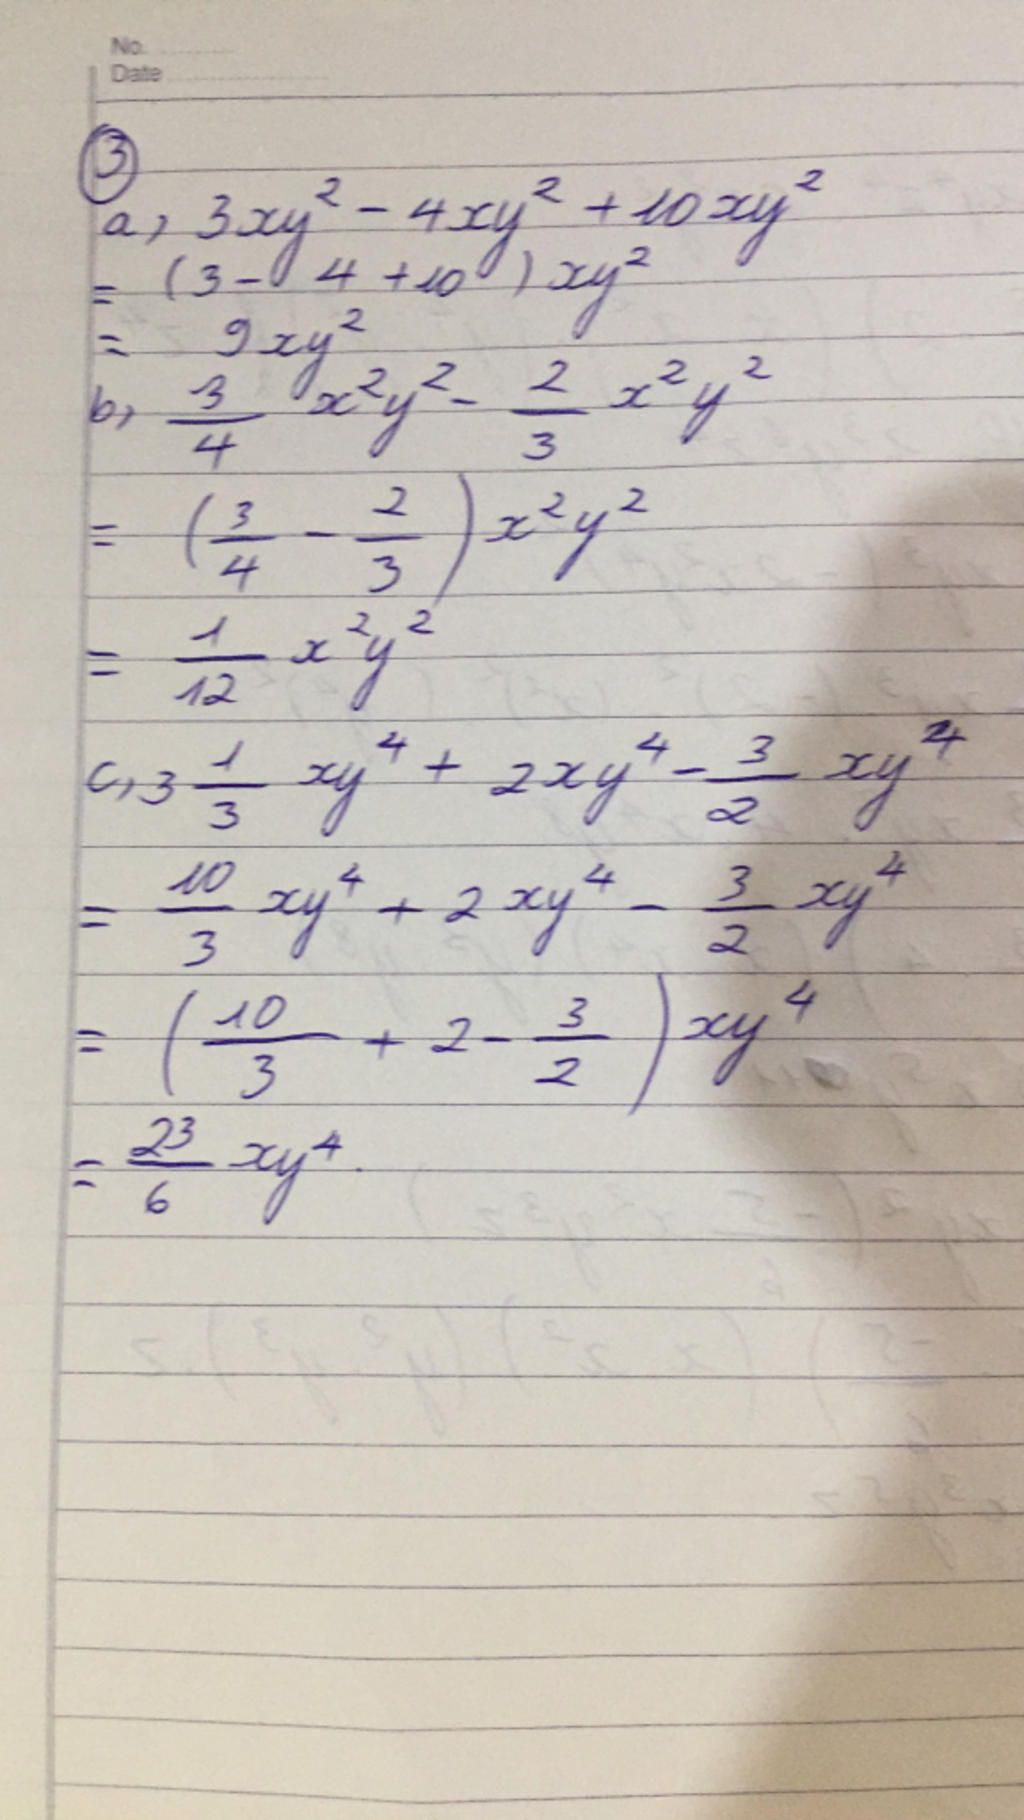 No.
Date
③
a, 3xy² - 4xy² + 10xy²
= (3 - 4 + 10) xy²
= 9xy²
b, 3/4 x²y² - 2/3 x²y²
= (3/4 - 2/3) x²y²
= 1/12 x²y²
c, 3 1/3 xy⁴ + 2xy⁴ - 3/2 xy⁴
= 10/3 xy⁴ + 2xy⁴ - 3/2 xy⁴
= (10/3 + 2 - 3/2) xy⁴
= 23/6 xy⁴.